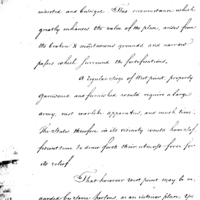 invested and besieged. This circumstance which
greatly enhances the value of the place, arises from
the broken & mountainous grounds and narrow
passes which surround the fortifications.
A regular siege of West point, properly
garrisoned and furnished would require a large
army, vast warlike apparatus, and much time.
The States therefore in its vicinity would have suf-
ficient time to draw forth their utmost force for
its relief
That however West point may be re-
garded by some Persons, as an interior place, yet